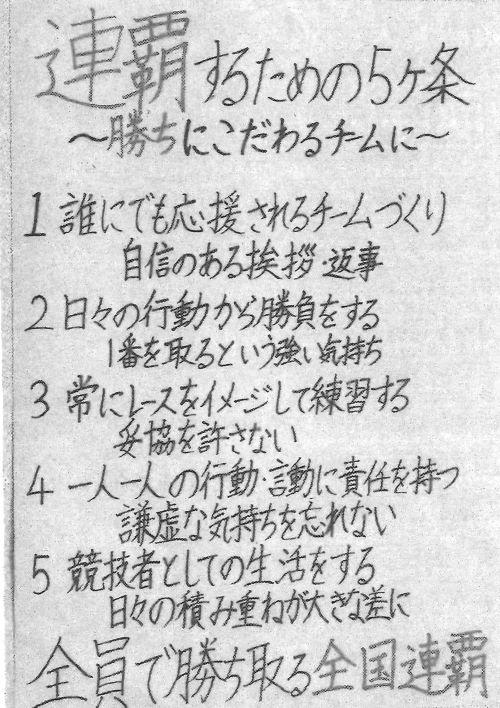 連覇するための5ヶ条
～勝ちにこだわるチームに～
1 誰にでも応援されるチームづくり
自信のある挨拶・返事
2 日々の行動から勝負をする
1番を取るという強い気持ち
3 常にレースをイメージして練習する
妥協を許さない
4 一人一人の行動・言動に責任を持つ
謙虚な気持ちを忘れない
5 競技者としての生活をする
日々の積み重ねが大きな差に
全員で勝ち取る全国連覇